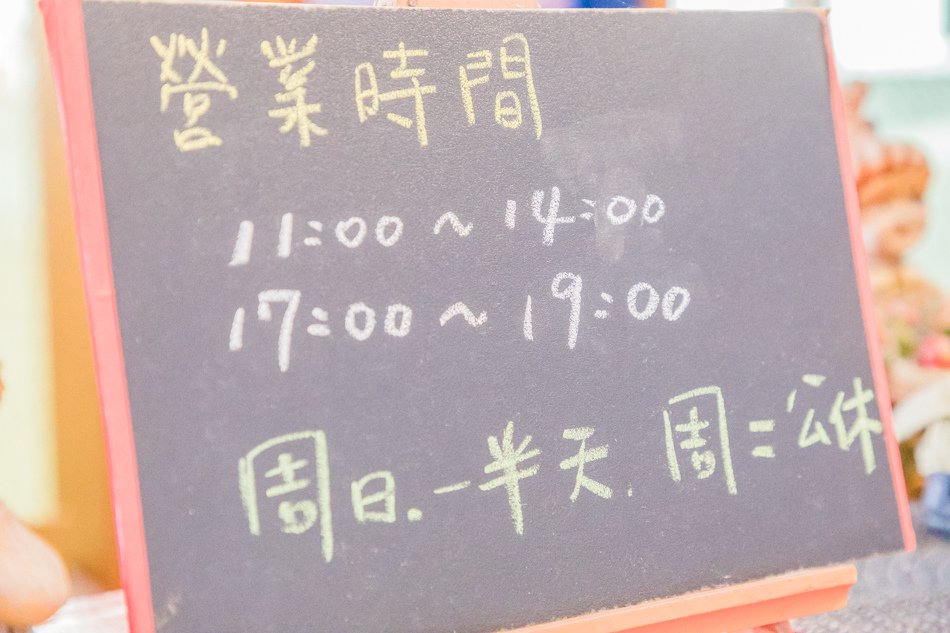 營業時間
11:00 ~ 14:00
17:00 ~ 19:00
周日.一半天. 周二公休